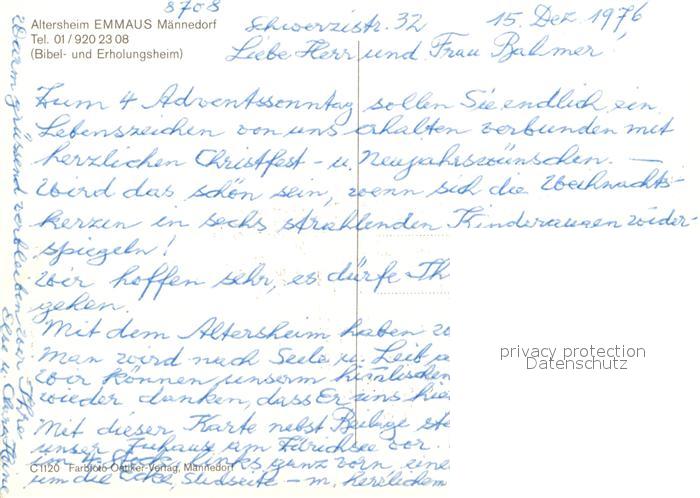 8708
Altersheim EMMAUS Männedorf
Tel. 01/920 23 08
(Bibel- und Erholungsheim)
Schwerzistr. 32 15. Dez. 1976
Liebe Herr und Frau Bahmer,
Zum 4 Adventssonntag sollen Sie endlich ein
Lebenszeichen von uns erhalten verbunden mit
herzlichen Christfest- u. Neujahrswünschen. —
Wird das schön sein, wenn sich die Weihnachts-
kerzen in sechs strahlenden Kinderaugen wider-
spiegeln!
Wir hoffen sehr, es dürfe Ih
gehen.
Mit dem Altersheim haben
Man wird nach Seele u. Leib
Wir können unserm himlischen
wieder danken, dass Er uns hie
Mit dieser Karte nebst Beilage ste
unser Zuhause am Zürichsee vor.
im 4. Stock, links ganz vorn, eine
um die Ecke, Südseite - m. herzlichem
Warm grüssend verbleiben wir Ihre
C 1120 Farbfoto Oetiker-Verlag, Männedorf
privacy protection
Datenschutz